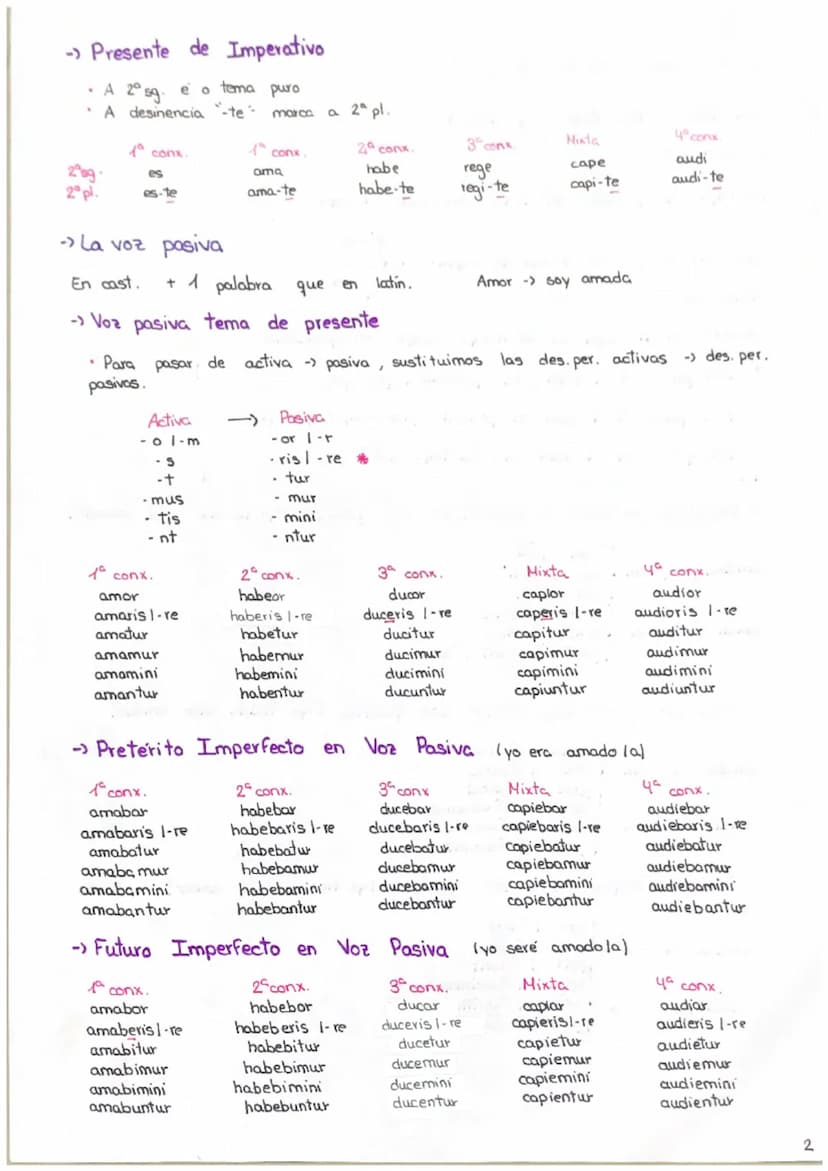 -> Presente de Imperativo
• A 2ª sg. é o tema puro
• A desinencia "-te" marca a 2ª pl.
1ª conx. 1ª conx. 2ª conx. 3ª conx. Mixta 4ª conx
2ª sg. es ama habe rege cape audi
2ª pl. es-te ama-te habe-te regi-te capi-te audi-te
-> La voz pasiva
En cast. + 1 palabra que en latín. Amor -> soy amada
-> Voz pasiva tema de presente
• Para pasar de activa -> pasiva, sustituimos las des. per. activas -> des. per.
pasivas.
Activa -> Pasiva
- o l-m - or l-r
- s - ris l -re *
- t - tur
- mus - mur
- tis - mini
- nt - ntur
1ª conx. 2ª conx. 3ª conx. Mixta 4ª conx.
amor habeor ducor capior audior
amaris l-re haberis l-re duceris l-re caperis l-re audioris l-re
amatur habetur ducitur capitur auditur
amamur habemur ducimur capimur audimur
amamini habemini ducimini capimini audimini
amantur habentur ducuntur capiuntur audiuntur
-> Pretérito Imperfecto en Voz Pasiva (yo era amado la)
1ª conx. 2ª conx. 3ª conx Mixta 4ª conx.
amabar habebar ducebar capiebar audiebar
amabaris l-re habebaris l-re ducebaris l-re capiebaris l-re audiebaris l-re
amabatur habebatur ducebatur capiebatur audiebatur
amabamur habebamur ducebamur capiebamur audiebamur
amabamini habebamini ducebamini capiebamini audiebamini
amabantur habebantur ducebantur capiebantur audiebantur
-> Futuro Imperfecto en Voz Pasiva (yo seré amado la)
1ª conx. 2ª conx. 3ª conx. Mixta 4ª conx.
amabor habebor ducar capiar audiar
amaberis l-re habeberis l-re duceris l-re capieris l-re audieris l-re
amabitur habebitur ducetur capietur audietur
amabimur habebimur ducemur capiemur audiemur
amabimini habebimini ducemini capiemini audiemini
amabuntur habebuntur ducentur capientur audientur
2